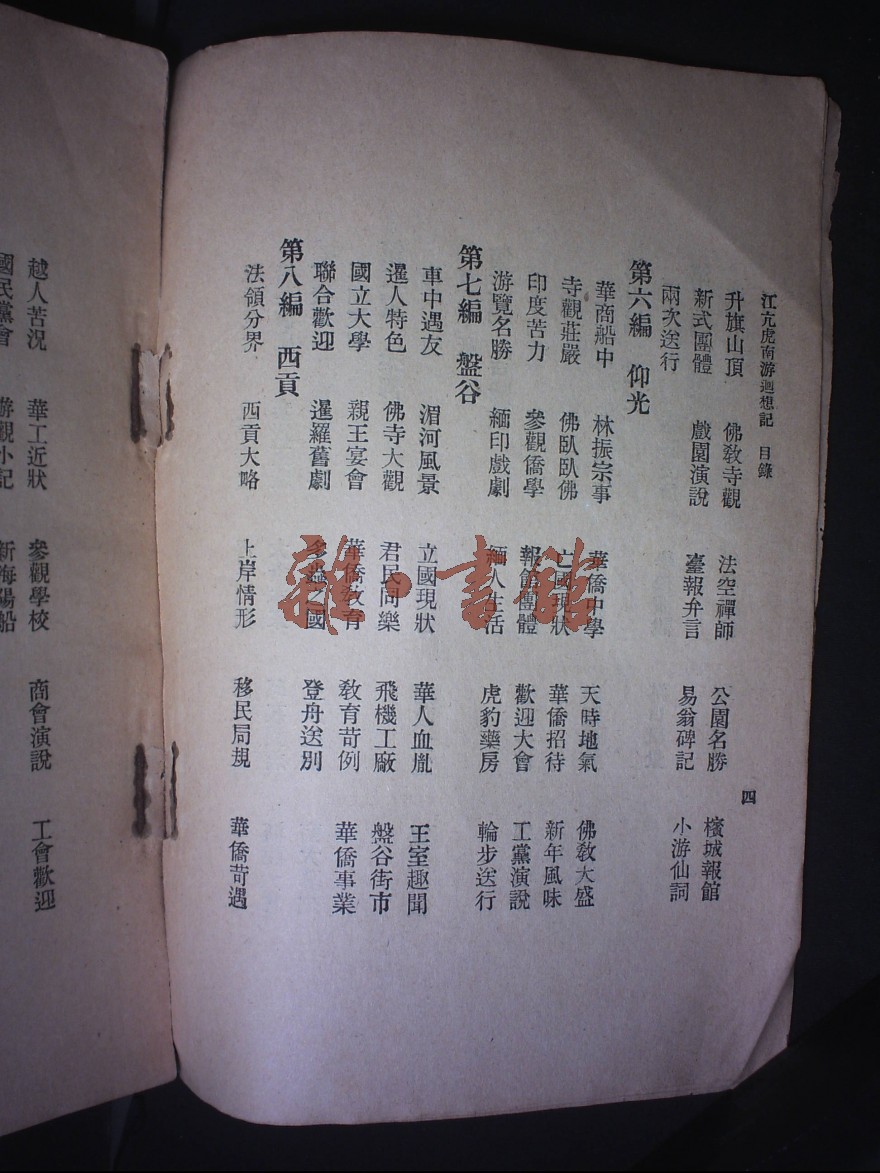 江亢虎南游迴想記　目錄　四
升旗山頂　佛敎寺觀　法空禪師　公園名勝　檳城報館
新式團體　戲園演說　臺報弁言　易翁碑記　小游仙詞
兩次送行
第六編　仰光
華商船中　林振宗事　華僑中學　天時地氣　佛敎大盛
寺觀莊嚴　佛臥臥佛　亡國現狀　華僑招待　新年風味
印度苦力　參觀僑學　報館團體　歡迎大會　工黨演說
游覽名勝　緬印戲劇　緬人生活　虎豹藥房　輪步送行
第七編　盤谷
車中遇友　湄河風景　立國現狀　華人血胤　王室趣聞
暹人特色　佛寺大觀　君民同樂　飛機工廠　盤谷街市
國立大學　親王宴會　華僑敎育　敎育苛例　華僑事業
聯合歡迎　暹羅舊劇　多蟲之國　登舟送別
第八編　西貢
法領分界　西貢大略　上岸情形　移民局規　華僑苛遇
越人苦況　華工近狀　參觀學校　商會演說　工會歡迎
國民黨會　游觀小記　新海陽船
雜·書館